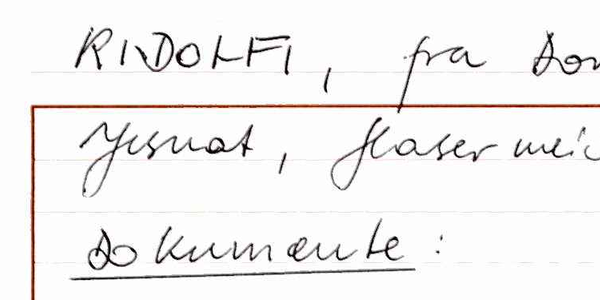 RIDOLFI, fra Do
Yesnat, Glasermei
Dokumente: